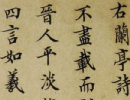 右蘭亭詩
不盡載而
晉人平淡
四言如義